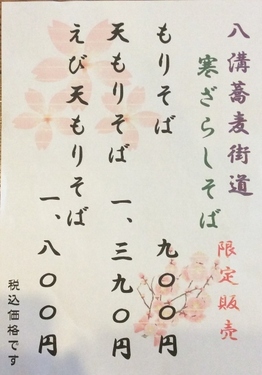 八溝蕎麦街道
寒ざらしそば
限定販売
もりそば 九〇〇円
天もりそば 一、三九〇円
えび天もりそば 一、八〇〇円
税込価格です